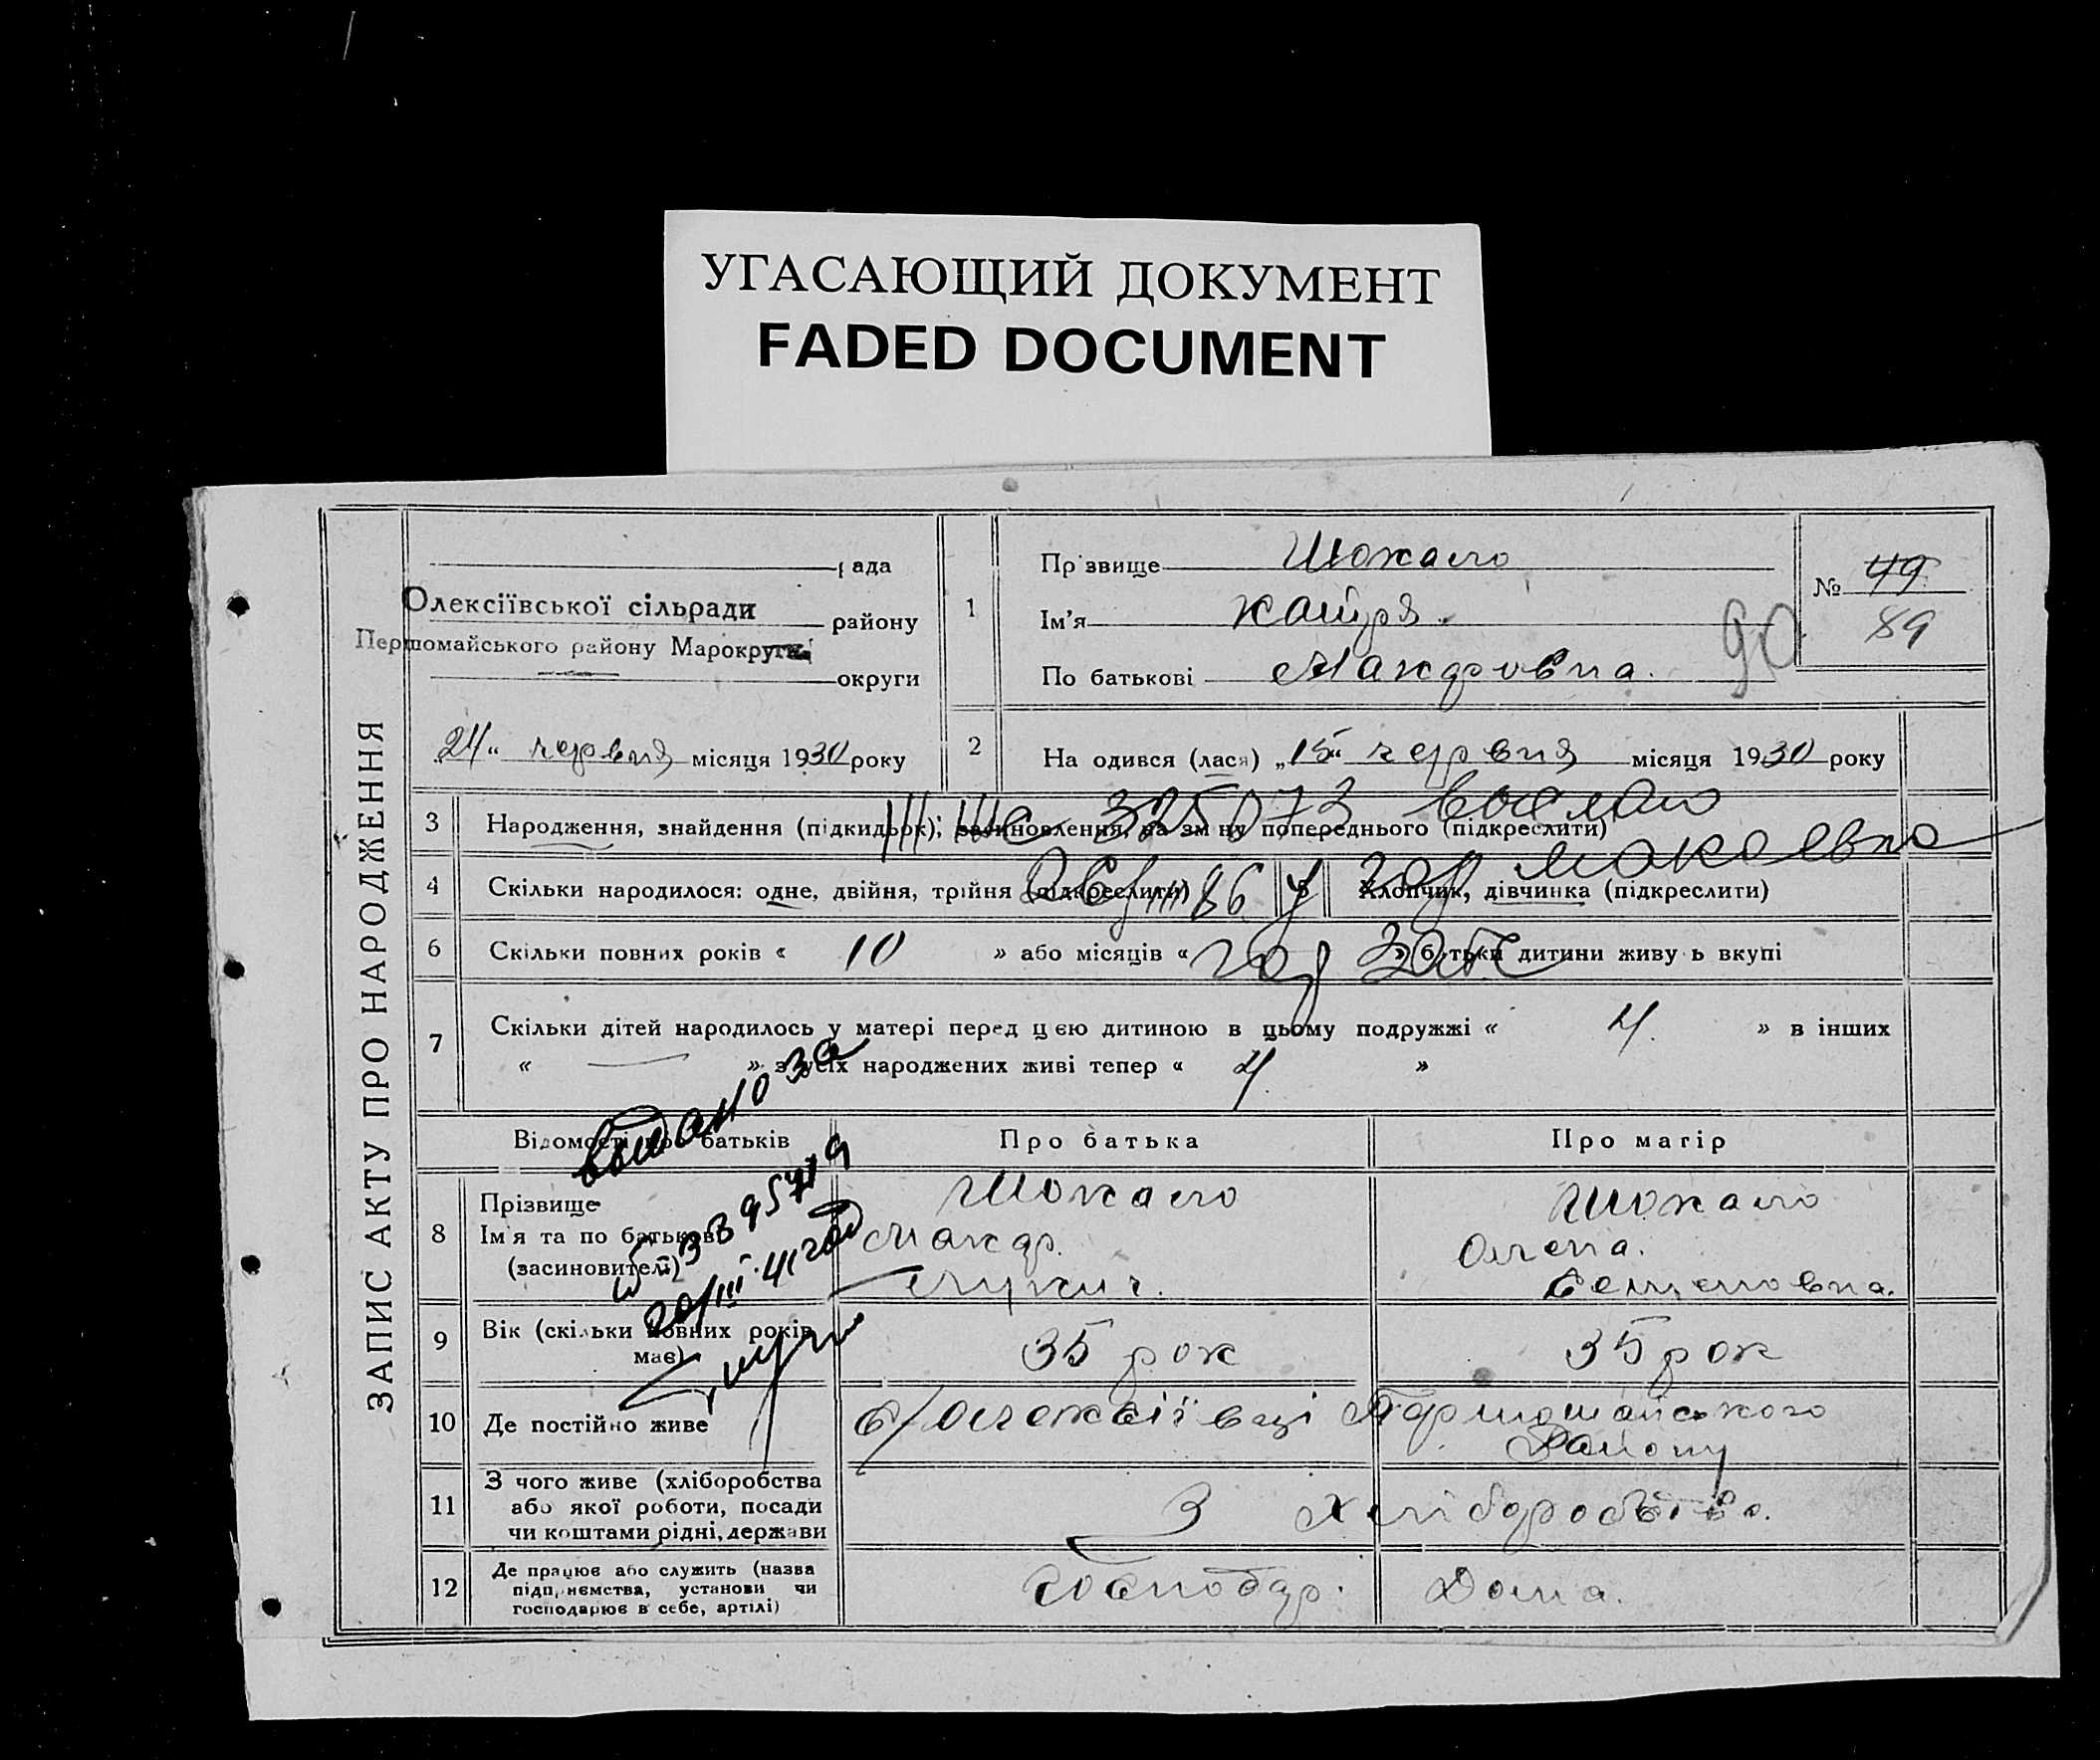 УГАСАЮЩИЙ ДОКУМЕНТ
FADED DOCUMENT
ЗАПИС АКТУ ПРО НАРОДЖЕННЯ
рада
Олексіївської сільради
району
Першомайського району Марокруги
округи
„24“ червня місяця 1930 року
1
Прізвище Шокало
Ім'я Катря.
По батькові Макаровна.
№ 49
89
90
2 На одився (лася) „15“ червня місяця 1930 року
3 Народження, знайдення (підкидьок); засиновлення, на зм ну попереднього (підкреслити)
325073
4 Скільки народилося: одне, двійня, трійня (підкреслити)
5 Хлопчик, дівчинка (підкреслити)
6 Скільки повних років « 10 » або місяців « » батьки дитини живу ь вкупі
7 Скільки дітей народилось у матері перед цією дитиною в цьому подружжі « 4. » в інших
« — » з усіх народжених живі тепер « 4. »
Відомості про батьків Про батька Про матір
выдано
20/III 41 год
8 Прізвище
Ім'я та по батькові
(засиновителі)
Шокало
Макар.
Лукич.
Шокало
Олена.
Семеновна.
9 Вік (скільки повних років
має)
35 рок 35 рок
10 Де постійно живе
в/Олексіївці Першомайського
Району
11 З чого живе (хліборобства
або якої роботи, посади
чи коштами рідні, держави
З Хліборобства.
12 Де працює або служить (назва
підприємства, установи чи
господарює в себе, артілі)
Господар. Дома.